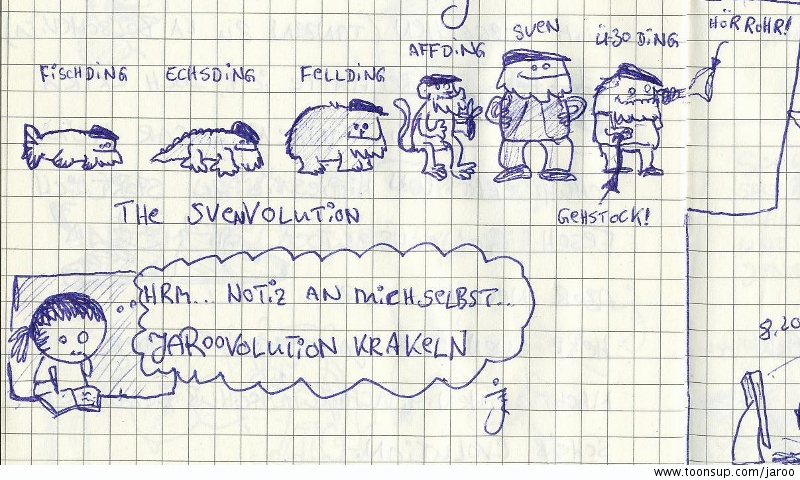 FISCHDING
ECHSDING
FELLDING
AFFDING
SVEN
Ü-30 DING
HÖRROHR!
GEHSTOCK!
THE SVENVOLUTION
HRM... NOTIZ AN MICH SELBST...
JAROOVOLUTION KRAKELN
j
8,20
www.toonsup.com/jaroo